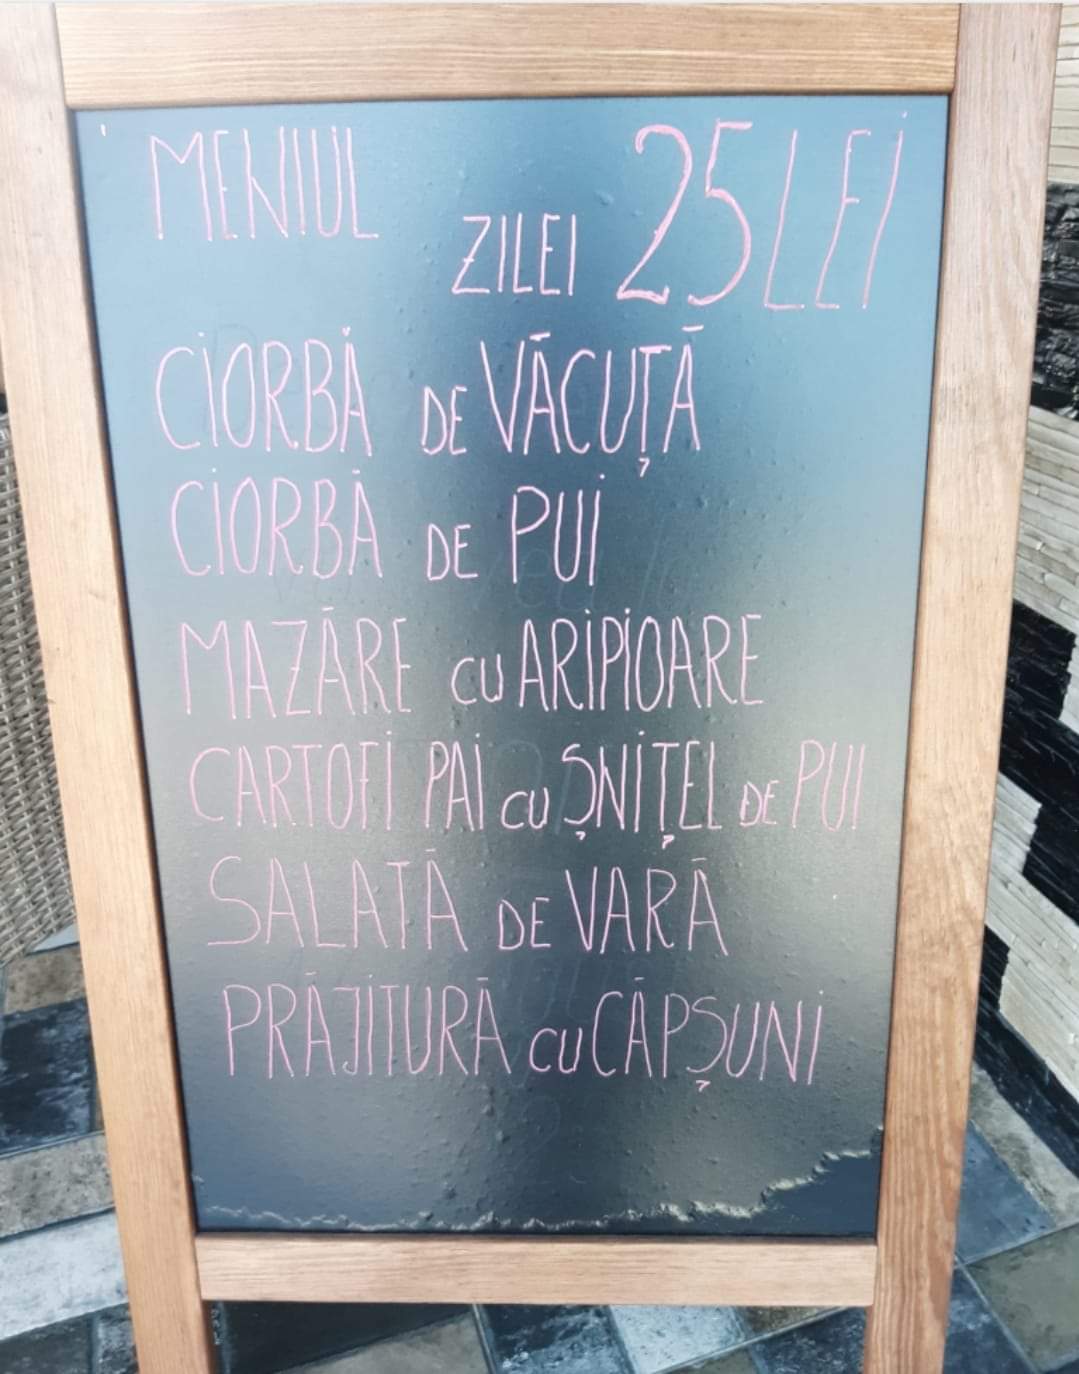 MENIUL ZILEI 25 LEI
CIORBĂ DE VĂCUȚĂ
CIORBĂ DE PUI
MAZĂRE cu ARIPIOARE
CARTOFI PAI cu ȘNIȚEL DE PUI
SALATĂ DE VARĂ
PRĂJITURĂ cu CĂPȘUNI